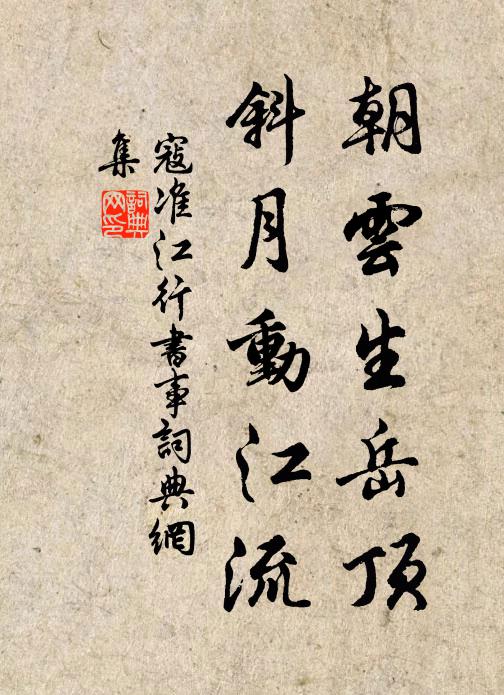 朝雲生岳頂
斜月動江流
寇准江行書事詞典網
集
詞典网印